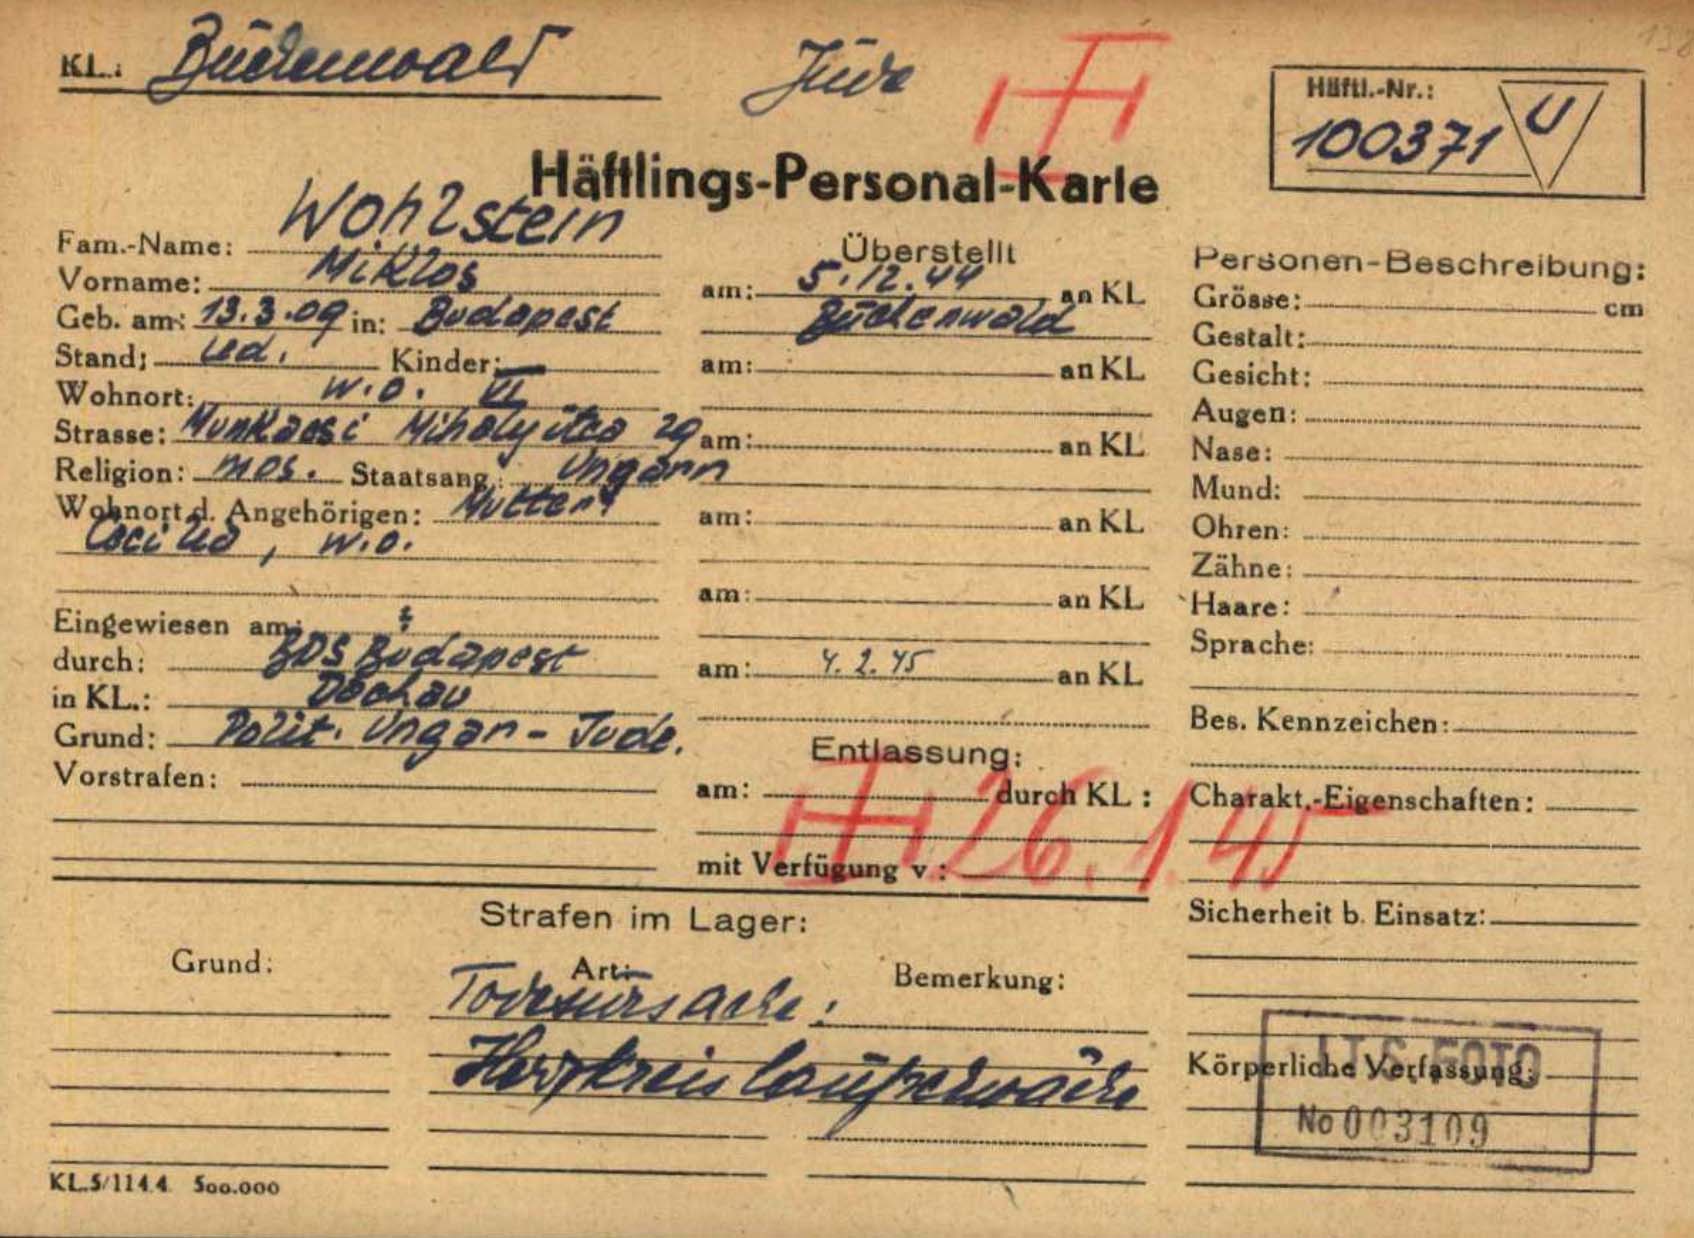 KL.: Buchenwald
Jude
Häftl.-Nr.:
100371 U
Häftlings-Personal-Karte
Fam.-Name: Wohlstein
Vorname: Miklos
Geb. am: 13.3.09 in: Budapest
Stand: led. Kinder: —
Wohnort: w.o. VI
Strasse: Munkacsi Mihaly utca 29
Religion: mos. Staatsang.: Ungarn
Wohnort d. Angehörigen: Mutter:
w.o.
Eingewiesen am:
durch: BDS Budapest
in KL.: Dachau
Grund: Polit. Ungar-Jude.
Vorstrafen:
Überstellt
am: 5.12.44 an KL
Buchenwald
am: an KL
am: an KL
am: an KL
am: an KL
am: 4.2.45 an KL
Entlassung:
am: durch KL:
mit Verfügung v.:
26.1.45
Personen-Beschreibung:
Grösse: cm
Gestalt:
Gesicht:
Augen:
Nase:
Mund:
Ohren:
Zähne:
Haare:
Sprache:
Bes. Kennzeichen:
Charakt.-Eigenschaften:
Sicherheit b. Einsatz:
Körperliche Verfassung:
Strafen im Lager:
Grund: Art: Bemerkung:
Todesursache:
Herzkreislaufschwäche
I.T.S. FOTO
No 003109
KL.5/114.4 500.000